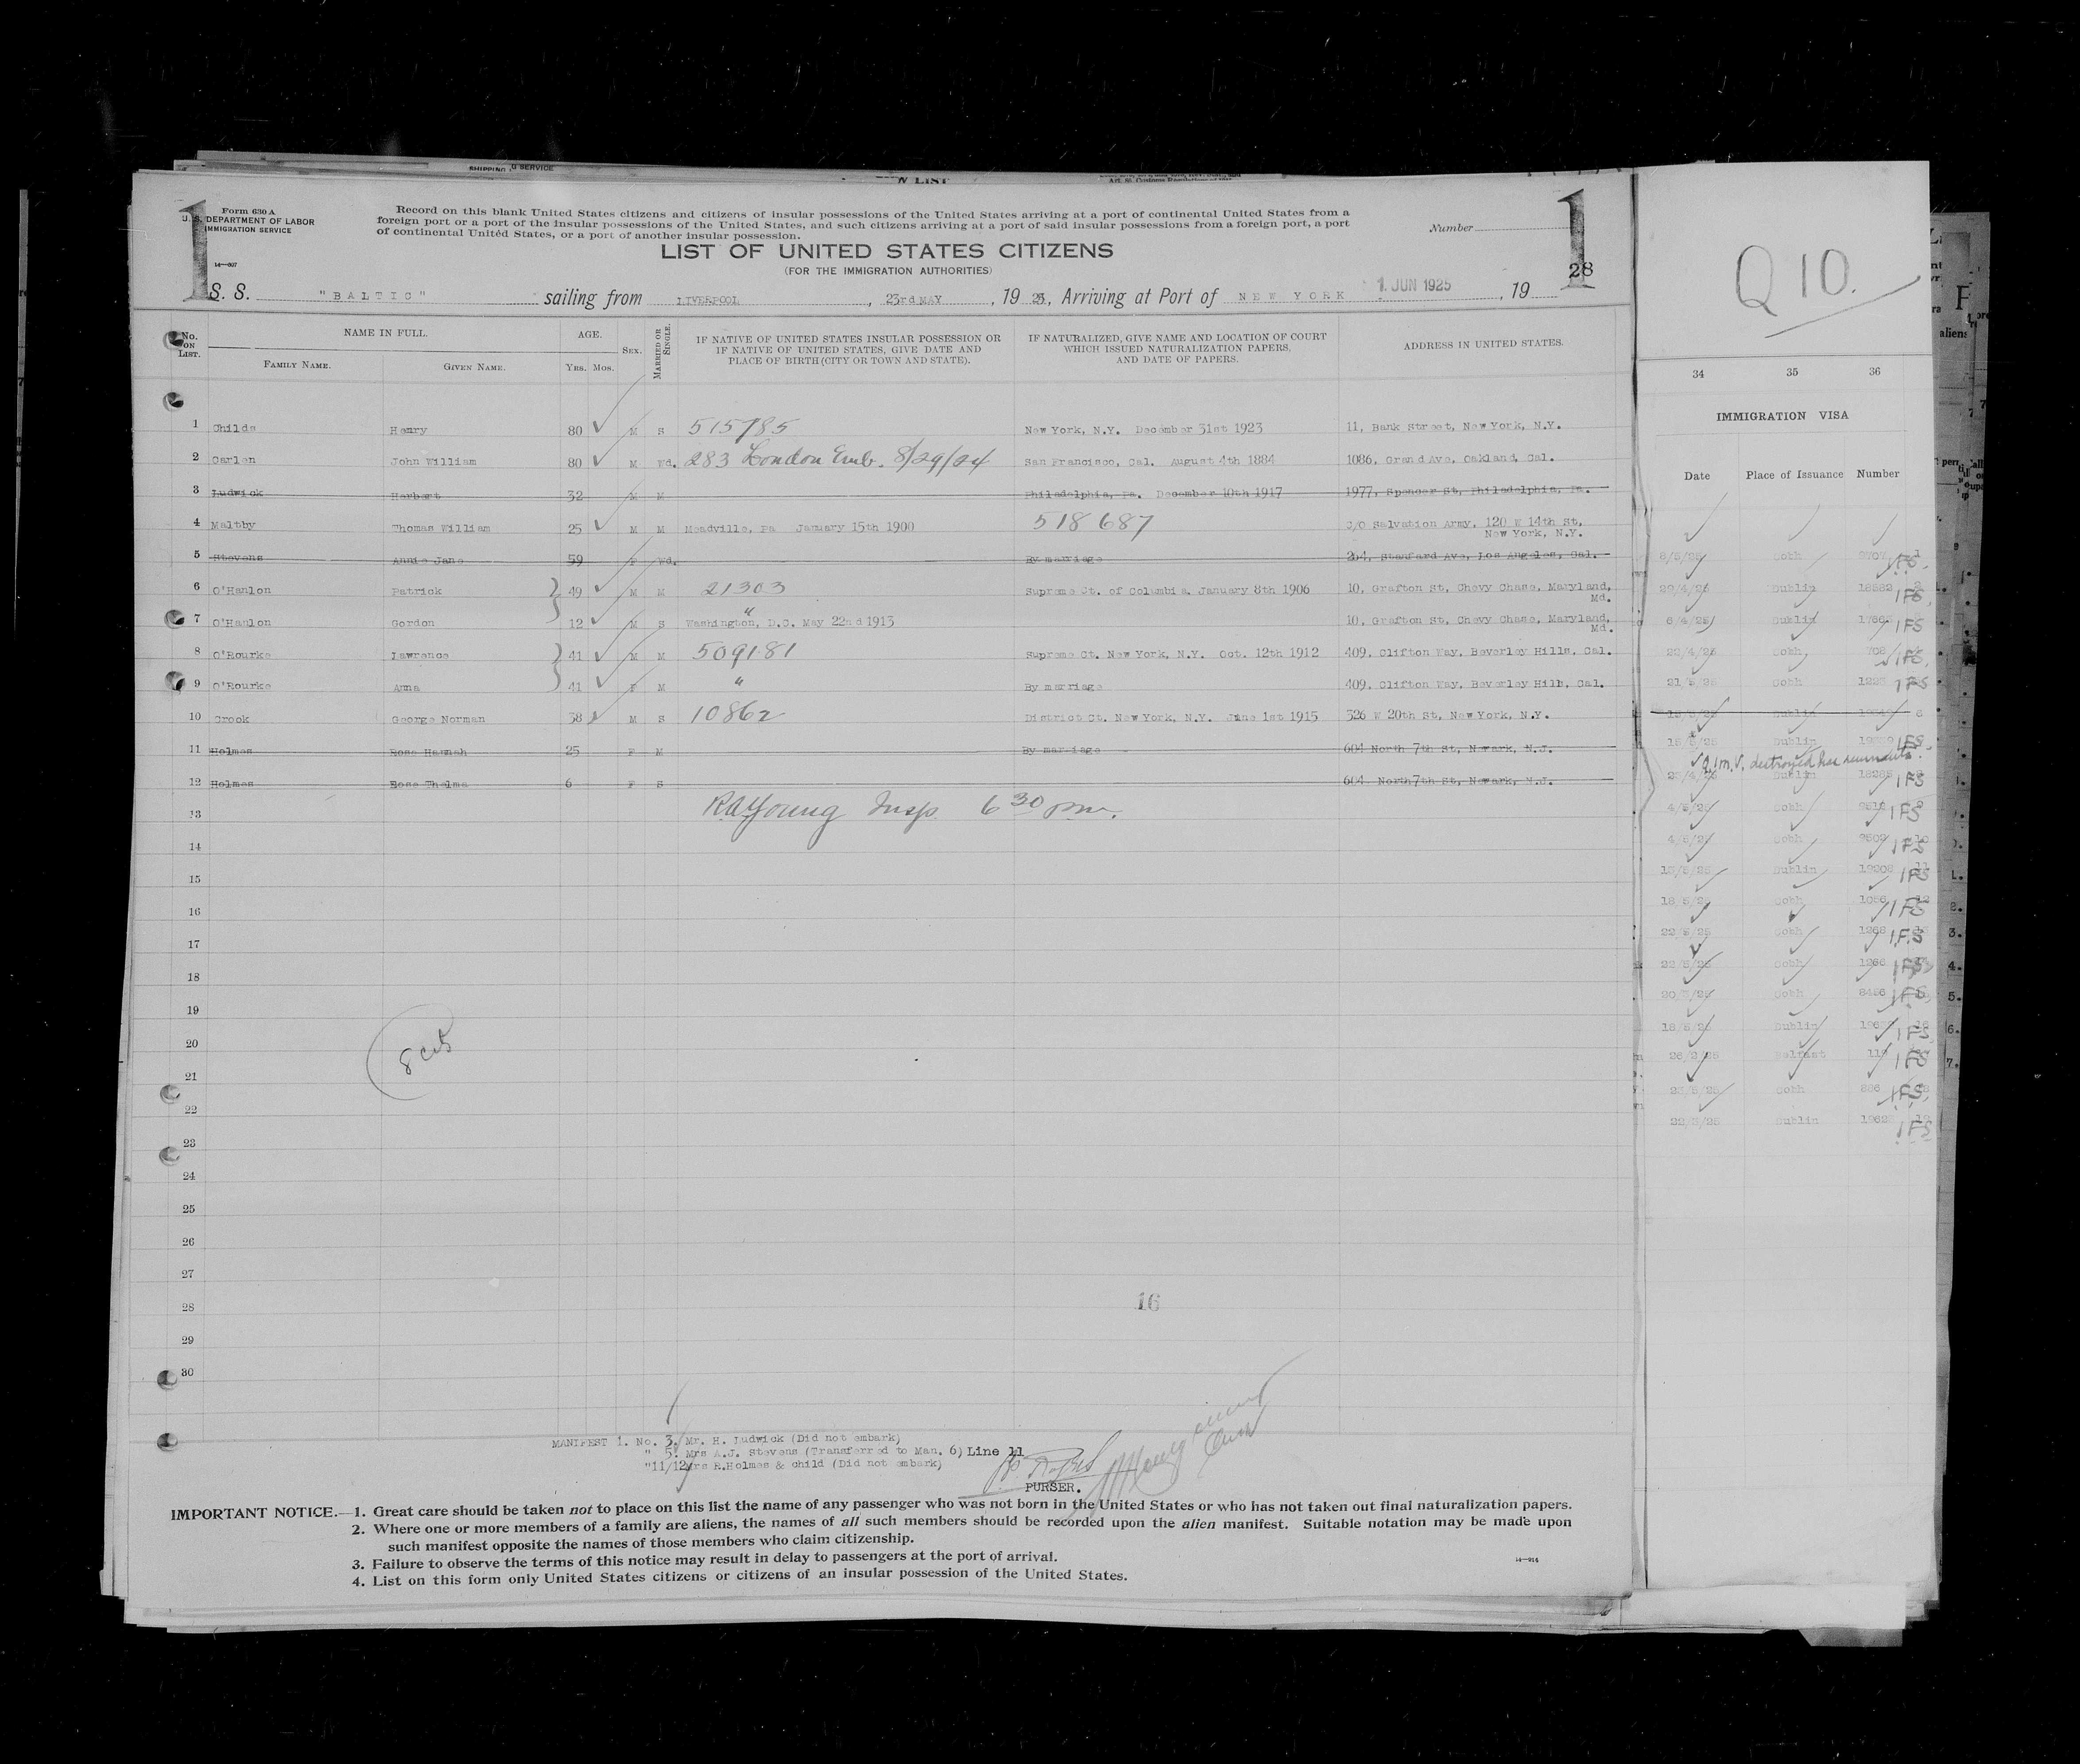 SHIPPING
G SERVICE
W LIST
Form 630 A
U. S. DEPARTMENT OF LABOR
IMMIGRATION SERVICE
14—607
1
Record on this blank United States citizens and citizens of insular possessions of the United States arriving at a port of continental United States from a
foreign port or a port of the insular possessions of the United States, and such citizens arriving at a port of said insular possessions from a foreign port, a port
of continental United States, or a port of another insular possession.
Number
1
28
LIST OF UNITED STATES CITIZENS
(FOR THE IMMIGRATION AUTHORITIES)
S. S. "BALTIC" sailing from LIVERPOOL, 23rd MAY, 19 25, Arriving at Port of NEW YORK 1 JUN 1925, 19
Q 10.
No. ON LIST.
NAME IN FULL.
FAMILY NAME.
GIVEN NAME.
AGE.
YRS. MOS.
SEX.
MARRIED OR SINGLE.
IF NATIVE OF UNITED STATES INSULAR POSSESSION OR
IF NATIVE OF UNITED STATES, GIVE DATE AND
PLACE OF BIRTH (CITY OR TOWN AND STATE).
IF NATURALIZED, GIVE NAME AND LOCATION OF COURT
WHICH ISSUED NATURALIZATION PAPERS,
AND DATE OF PAPERS.
ADDRESS IN UNITED STATES.
1 Childs Henry 80 M S 515785 New York, N.Y. December 31st 1923 11, Bank Street, New York, N.Y.
2 Carlen John William 80 M Wd. 283 London Emb. 8/29/24 San Francisco, Cal. August 4th 1884 1086, Grand Ave, Oakland, Cal.
3 Ludwick Herbert 32 M M Philadelphia, Pa. December 10th 1917 1977, Spencer St, Philadelphia, Pa.
4 Maltby Thomas William 25 M M Meadville, Pa January 15th 1900 518687 c/o Salvation Army, 120 W 14th St,
New York, N.Y.
5 Stevens Annie Jane 59 F Wd. By marriage 264, Stanford Ave, Los Angeles, Cal.
6 O'Hanlon Patrick 49 M M 21303 Supreme Ct. of Columbia. January 8th 1906 10, Grafton St, Chevy Chase, Maryland,
Md.
7 O'Hanlon Gordon 12 M S " Washington, D.C. May 22nd 1913 10, Grafton St, Chevy Chase, Maryland,
Md.
8 O'Rourke Lawrence 41 M M 509181 Supreme Ct. New York, N.Y. Oct. 12th 1912 409, Clifton Way, Beverley Hills, Cal.
9 O'Rourke Anna 41 F M " By marriage 409, Clifton Way, Beverley Hills, Cal.
10 Crook George Norman 38 M S 10862 District Ct. New York, N.Y. June 1st 1915 326 W 20th St, New York, N.Y.
11 Holmes Rose Hannah 25 F M By marriage 604 North 7th St, Newark, N.J.
12 Holmes Rose Thelma 6 F S 604 North 7th St, Newark, N.J.
13 R A Young Insp. 6 30 pm.
14
15
16
17
18
19
20
21
22
23
24
25
26
27
28
29
30
16
MANIFEST 1. No. 3. Mr. H. Ludwick (Did not embark)
" 5. Mrs A.J. Stevens (Transferred to Man. 6) Line 11
"11/12 Mrs R.Holmes & child (Did not embark)
PURSER.
IMPORTANT NOTICE.—1. Great care should be taken not to place on this list the name of any passenger who was not born in the United States or who has not taken out final naturalization papers.
2. Where one or more members of a family are aliens, the names of all such members should be recorded upon the alien manifest. Suitable notation may be made upon
such manifest opposite the names of those members who claim citizenship.
3. Failure to observe the terms of this notice may result in delay to passengers at the port of arrival.
4. List on this form only United States citizens or citizens of an insular possession of the United States.
14—914
34 35 36
IMMIGRATION VISA
Date Place of Issuance Number
Cobh
Dublin
Dublin
Cobh
21/5/25 Cobh
Dublin
Dublin
Dublin
Cobh
Cobh
Dublin
Cobh
22/5/25 Cobh
22/5/25 Cobh 1266
Cobh
18/5/25 Dublin
Belfast
Cobh
22/5/25 Dublin